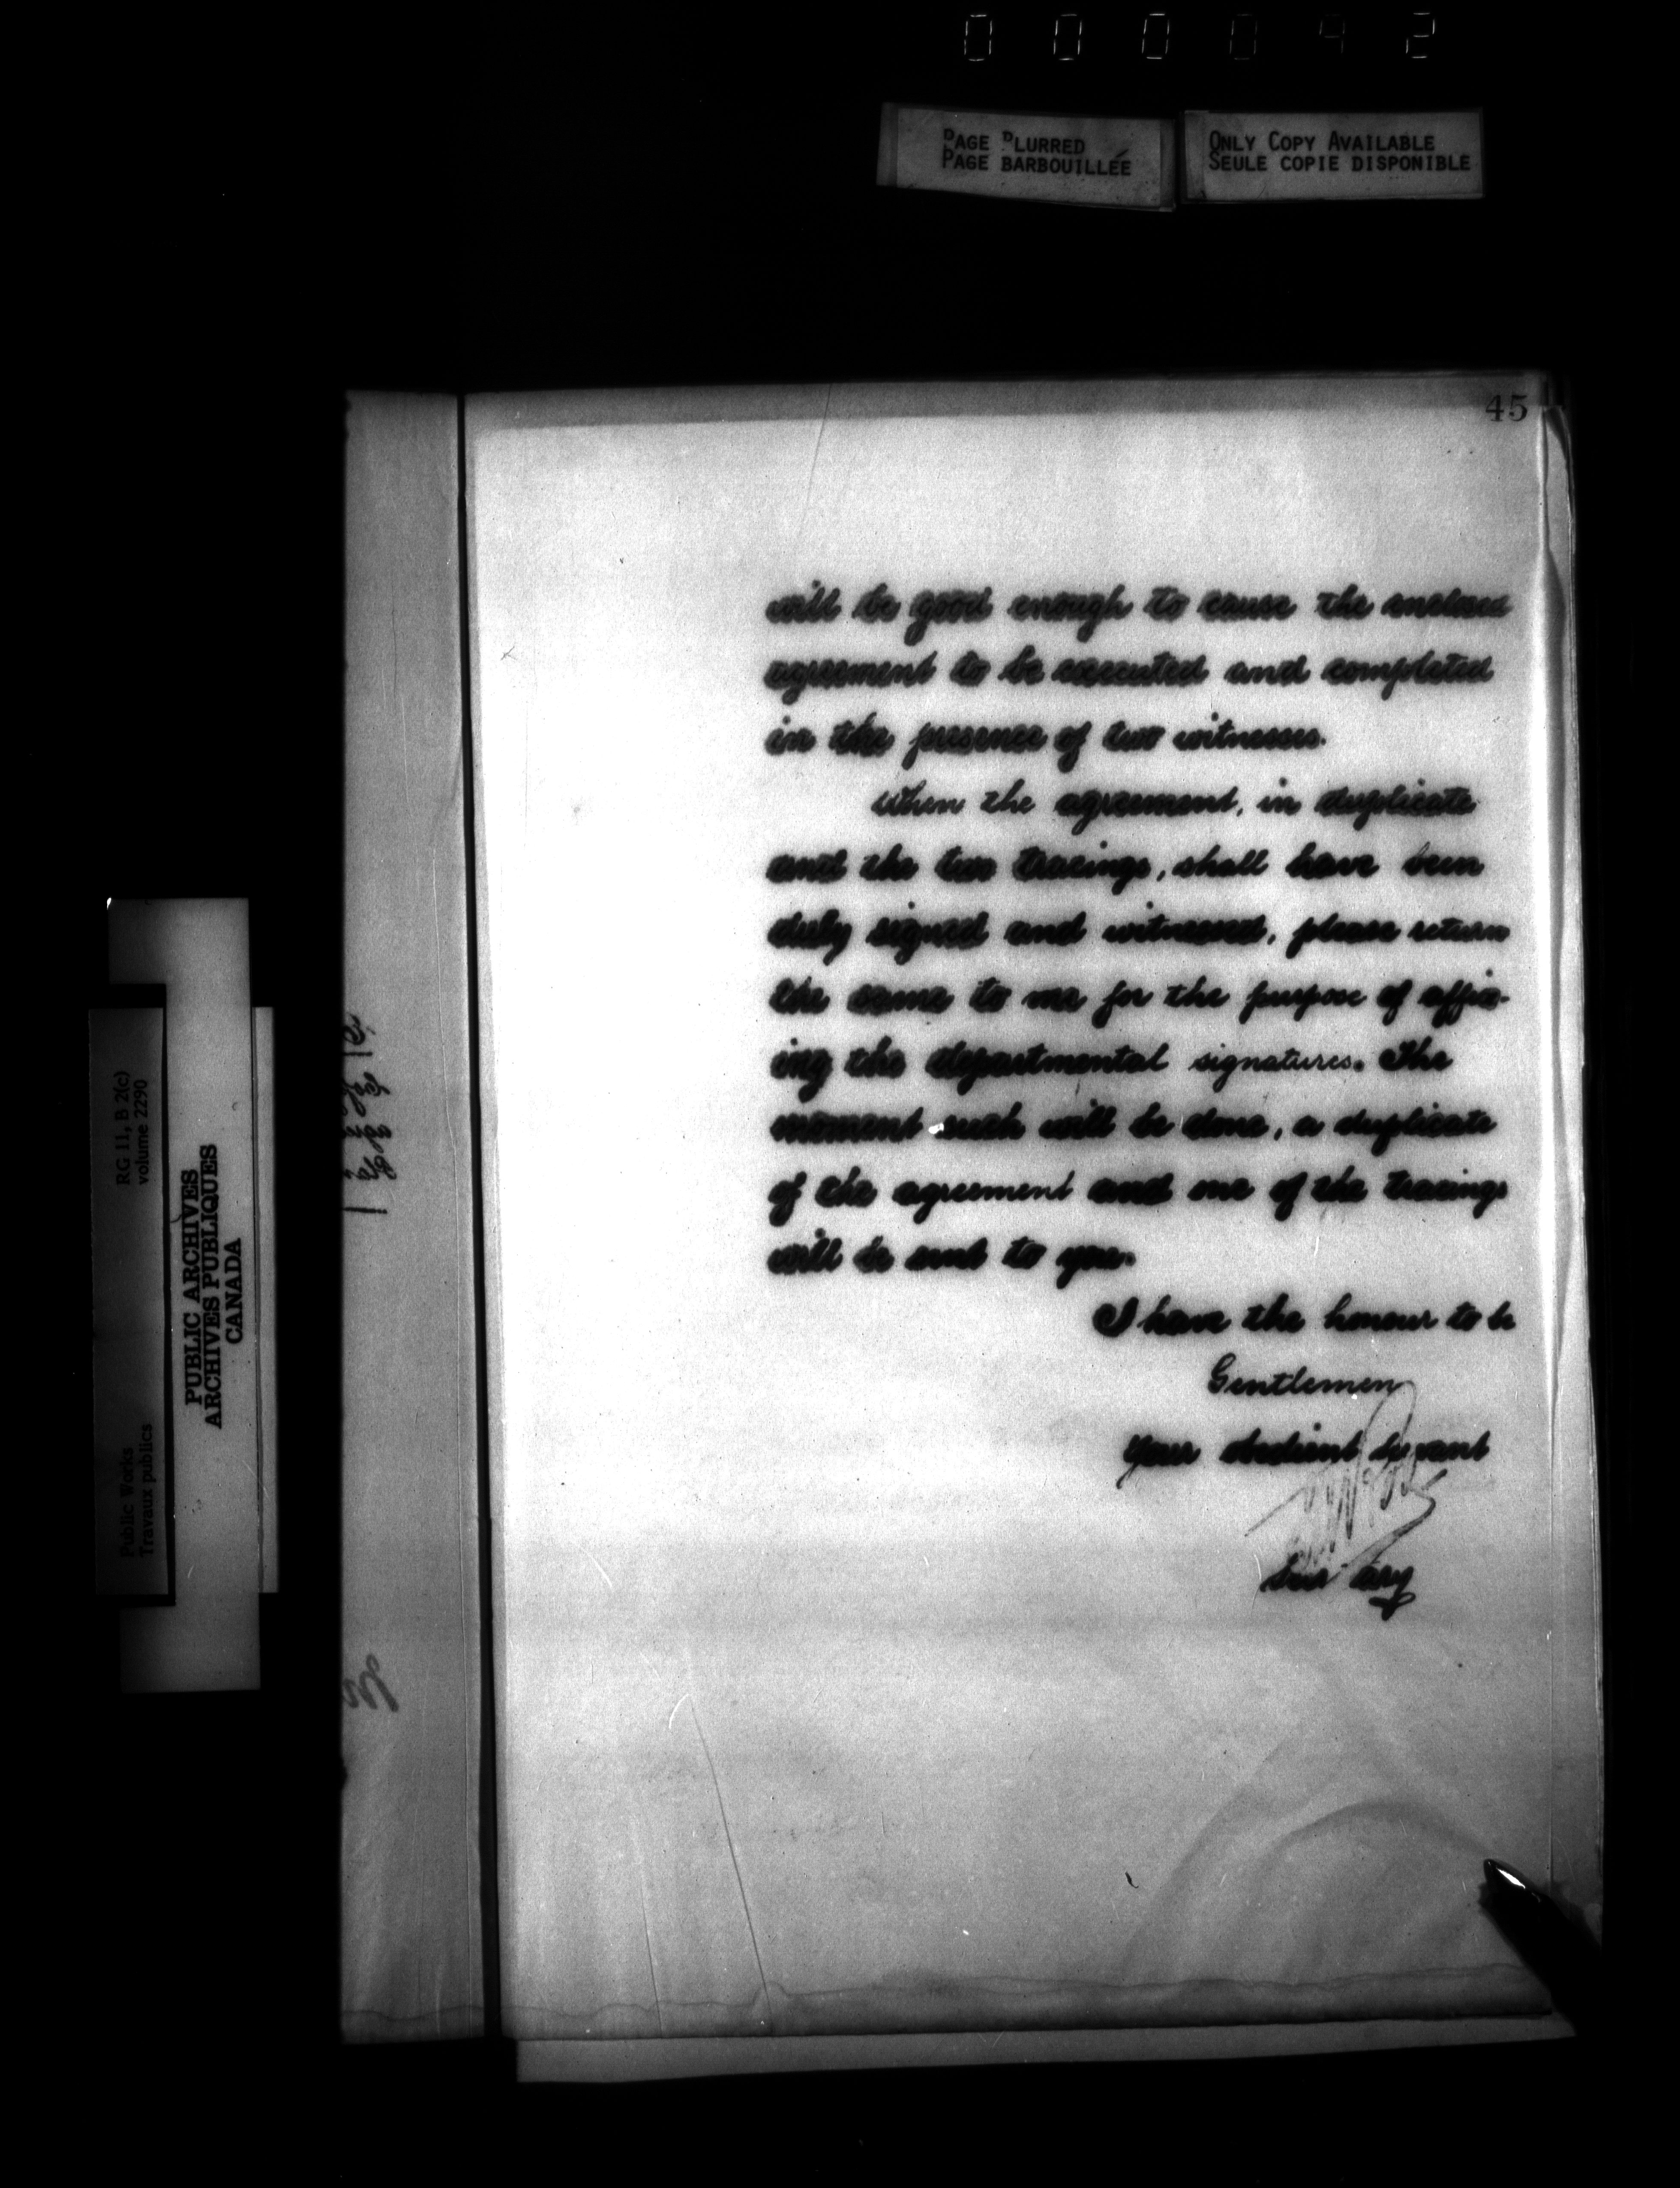 000042
PAGE BLURRED
PAGE BARBOUILLÉE
ONLY COPY AVAILABLE
SEULE COPIE DISPONIBLE
45
will be good enough to cause the enclosed
agreement to be executed and completed
in the presence of two witnesses.
When the agreement, in duplicate
and the two tracings, shall have been
duly signed and witnessed, please return
the same to me for the purpose of affix-
ing the departmental signatures. The
moment such will be done, a duplicate
of the agreement and one of the tracings
will be sent to you.
I have the honour to be
Gentlemen
Your obedient servant
Secretary
RG 11, B 2(c)
volume 2290
Public Works
Travaux publics
PUBLIC ARCHIVES
ARCHIVES PUBLIQUES
CANADA